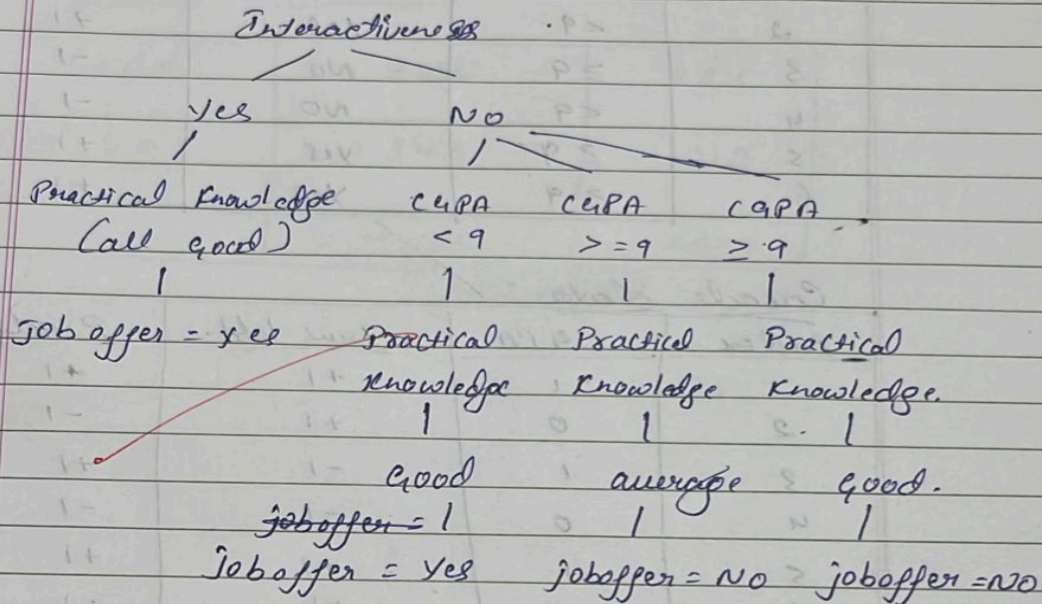 Interactiveness
Yes No
Practical Knowledge CGPA CGPA CGPA
(all good) < 9 >= 9 ≥ 9
job offer = yes Practical Practical Practical
Knowledge Knowledge Knowledge.
Good average Good.
joboffer =
job offer = Yes joboffer = NO joboffer = NO